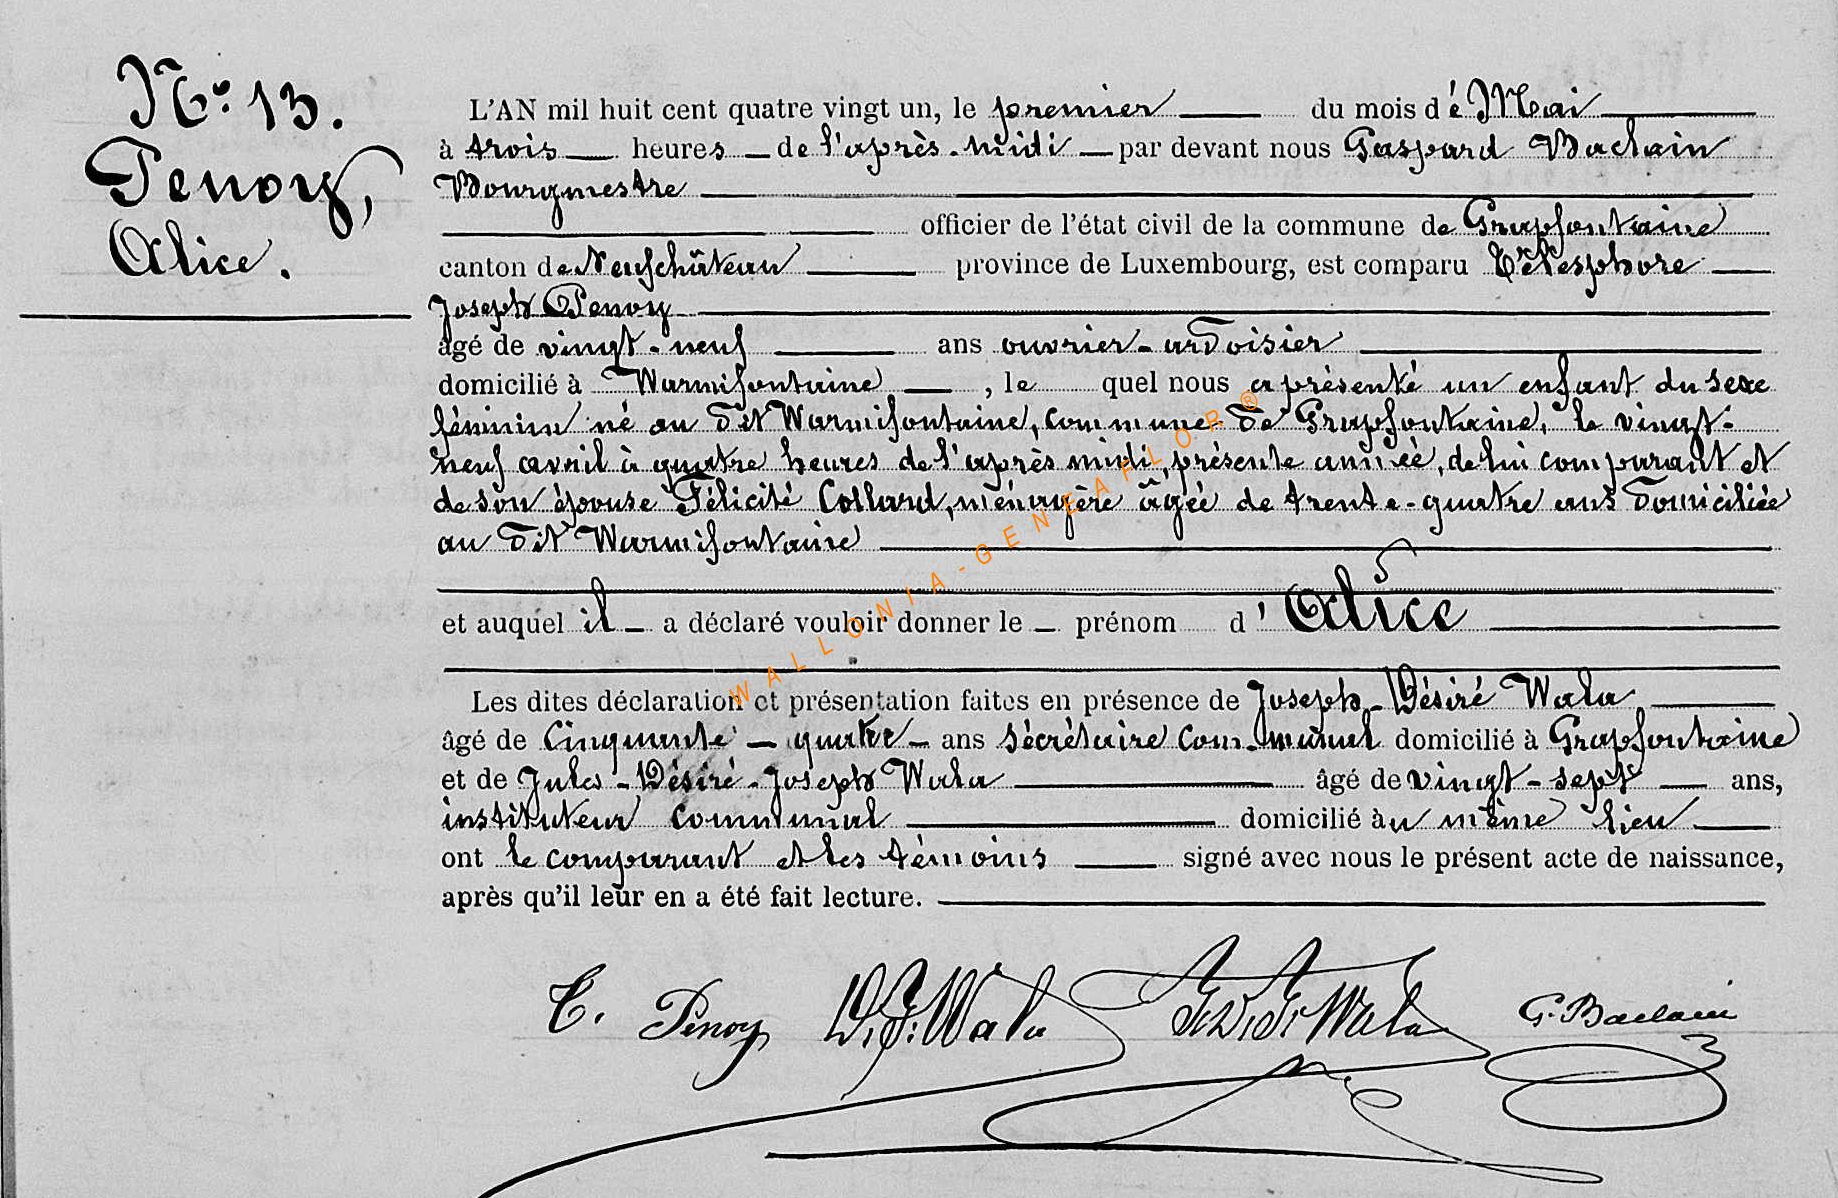 No. 13.
Penoy,
Alice.
L'AN mil huit cent quatre vingt un, le premier du mois dé Mai
à trois heures de l'après-midi par devant nous Gaspard Baclain
Bourgmestre
officier de l'état civil de la commune de Grapfontaine
canton de Neufchâteau province de Luxembourg, est comparu Télesphore
Joseph Penoy
âgé de vingt-neuf ans ouvrier-ardoisier
domicilié à Warmifontaine, le quel nous a présenté un enfant du sexe
féminin né au dit Warmifontaine, commune de Grapfontaine, le vingt-
neuf avril à quatre heures de l'après midi, présente année, de lui comparant et
de son épouse Félicité Collard, ménagère âgée de trente-quatre ans domiciliée
au dit Warmifontaine
et auquel il a déclaré vouloir donner le prénom d'Alice
Les dites déclaration et présentation faites en présence de Joseph-Désiré Wala
âgé de cinquante-quatre ans sécrétaire communal domicilié à Grapfontaine
et de Jules-Désiré-Joseph Wala âgé de vingt-sept ans,
instituteur communal domicilié au même lieu
ont le comparant et les témoins signé avec nous le présent acte de naissance,
après qu'il leur en a été fait lecture.
T. Penoy D. J. Wala J. D. J. Wala G. Baclain
WALLONIA-GENEAFLOR®